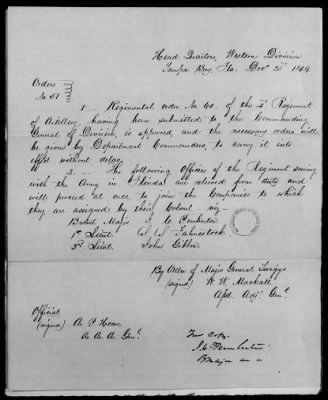 Head Quarters, Western Division
Tampa Bay, Fla. Decr 25th 1849
Orders
No. 57
1 _ Regimental order No 60. of the 4th Regiment
of Artillery, having been submitted to the Commanding
General of Division, is approved, and the necessary orders will
be given by Department Commanders, to carry it into
effect without delay.
2 _ The following Officers of the Regiment serving
with the Army in Florida are relieved from duty and
will proceed at once to join the Companies to which
they are assigned by their Colonel viz-
Brevet Major J. C. Pemberton
1st Lieut S. S. Fahnestock
2d Lieut. John Gibbon
By Order of Major General Twiggs
(signed) W. W. Mackall
Asst. Adjt Genl.
Official
(signed) A. P. Howe
A. A. A Genl.
True copy
J. C. Pemberton
B. Major